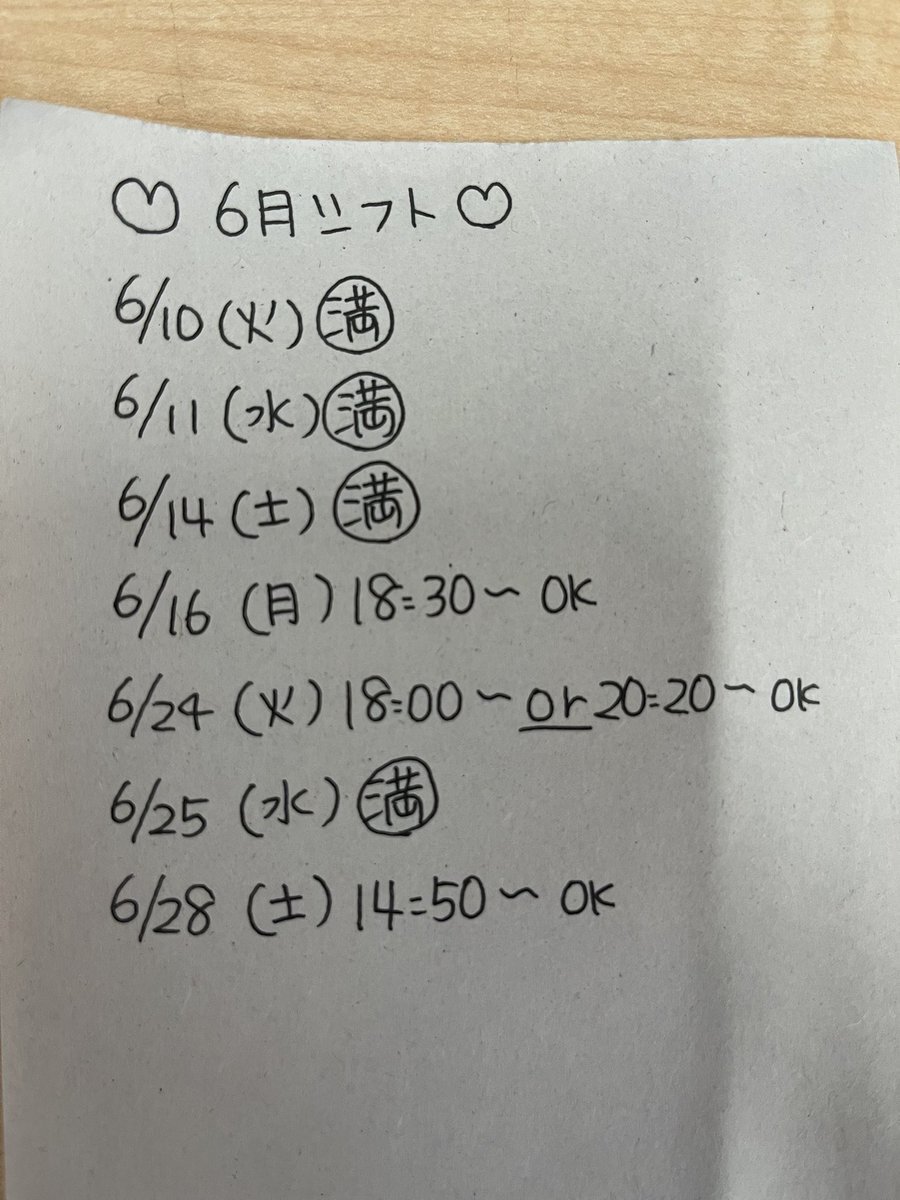 ♡ 6月シフト ♡
6/10 (火) ㊿満
6/11 (水) 満
6/14 (土) 満
6/16 (月) 18:30〜 OK
6/24 (火) 18:00〜 or 20:20〜 OK
6/25 (水) 満
6/28 (土) 14:50〜 OK